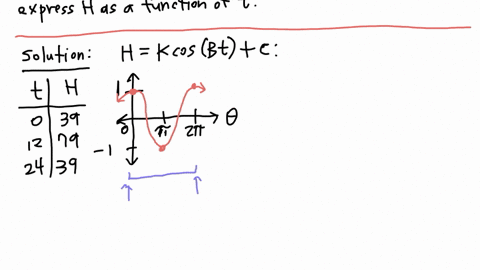 express H as a function of t.
Solution: H = K cos(Bt) + C:
t H
0 39
12 79
24 39
1
0 π 2π θ
-1